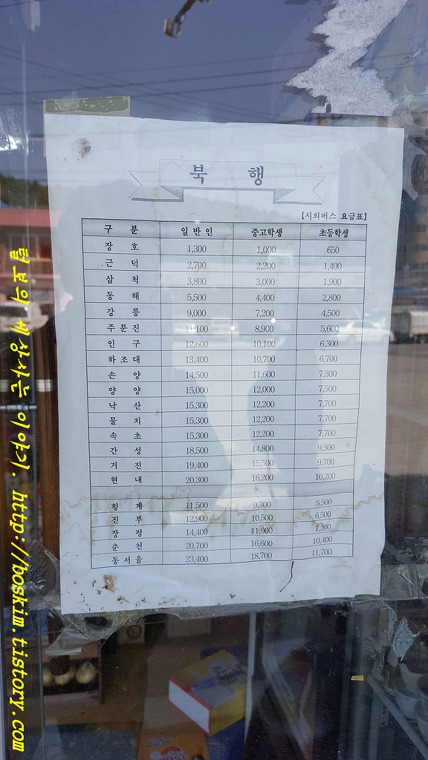 북 행
[시외버스 요금표]
구 분 일 반 인 중고학생 초등학생
장 호 1,300 1,000 650
근 덕 2,700 2,200 1,400
삼 척 3,800 3,000 1,900
동 해 5,500 4,400 2,800
강 릉 9,000 7,200 4,500
주 문 진 8,900 5,600
인 구 12,600 10,100 6,300
하 조 대 13,400 10,700 6,700
손 양 14,500 11,600 7,300
양 양 15,000 12,000 7,500
낙 산 15,300 12,200 7,700
물 치 15,300 12,200 7,700
속 초 15,300 12,200 7,700
간 성 18,500 14,800 9,300
거 진 19,400 15,500 9,700
현 내 20,300 16,200 10,200
횡 계 11,500 9,300 5,500
진 부 12,900 10,500 6,500
장 평 14,400 11,900 7,200
춘 천 20,700 16,600 10,400
동 서 울 23,400 18,700 11,700
털보의 세상사는 이야기. http://boskim.tistory.com